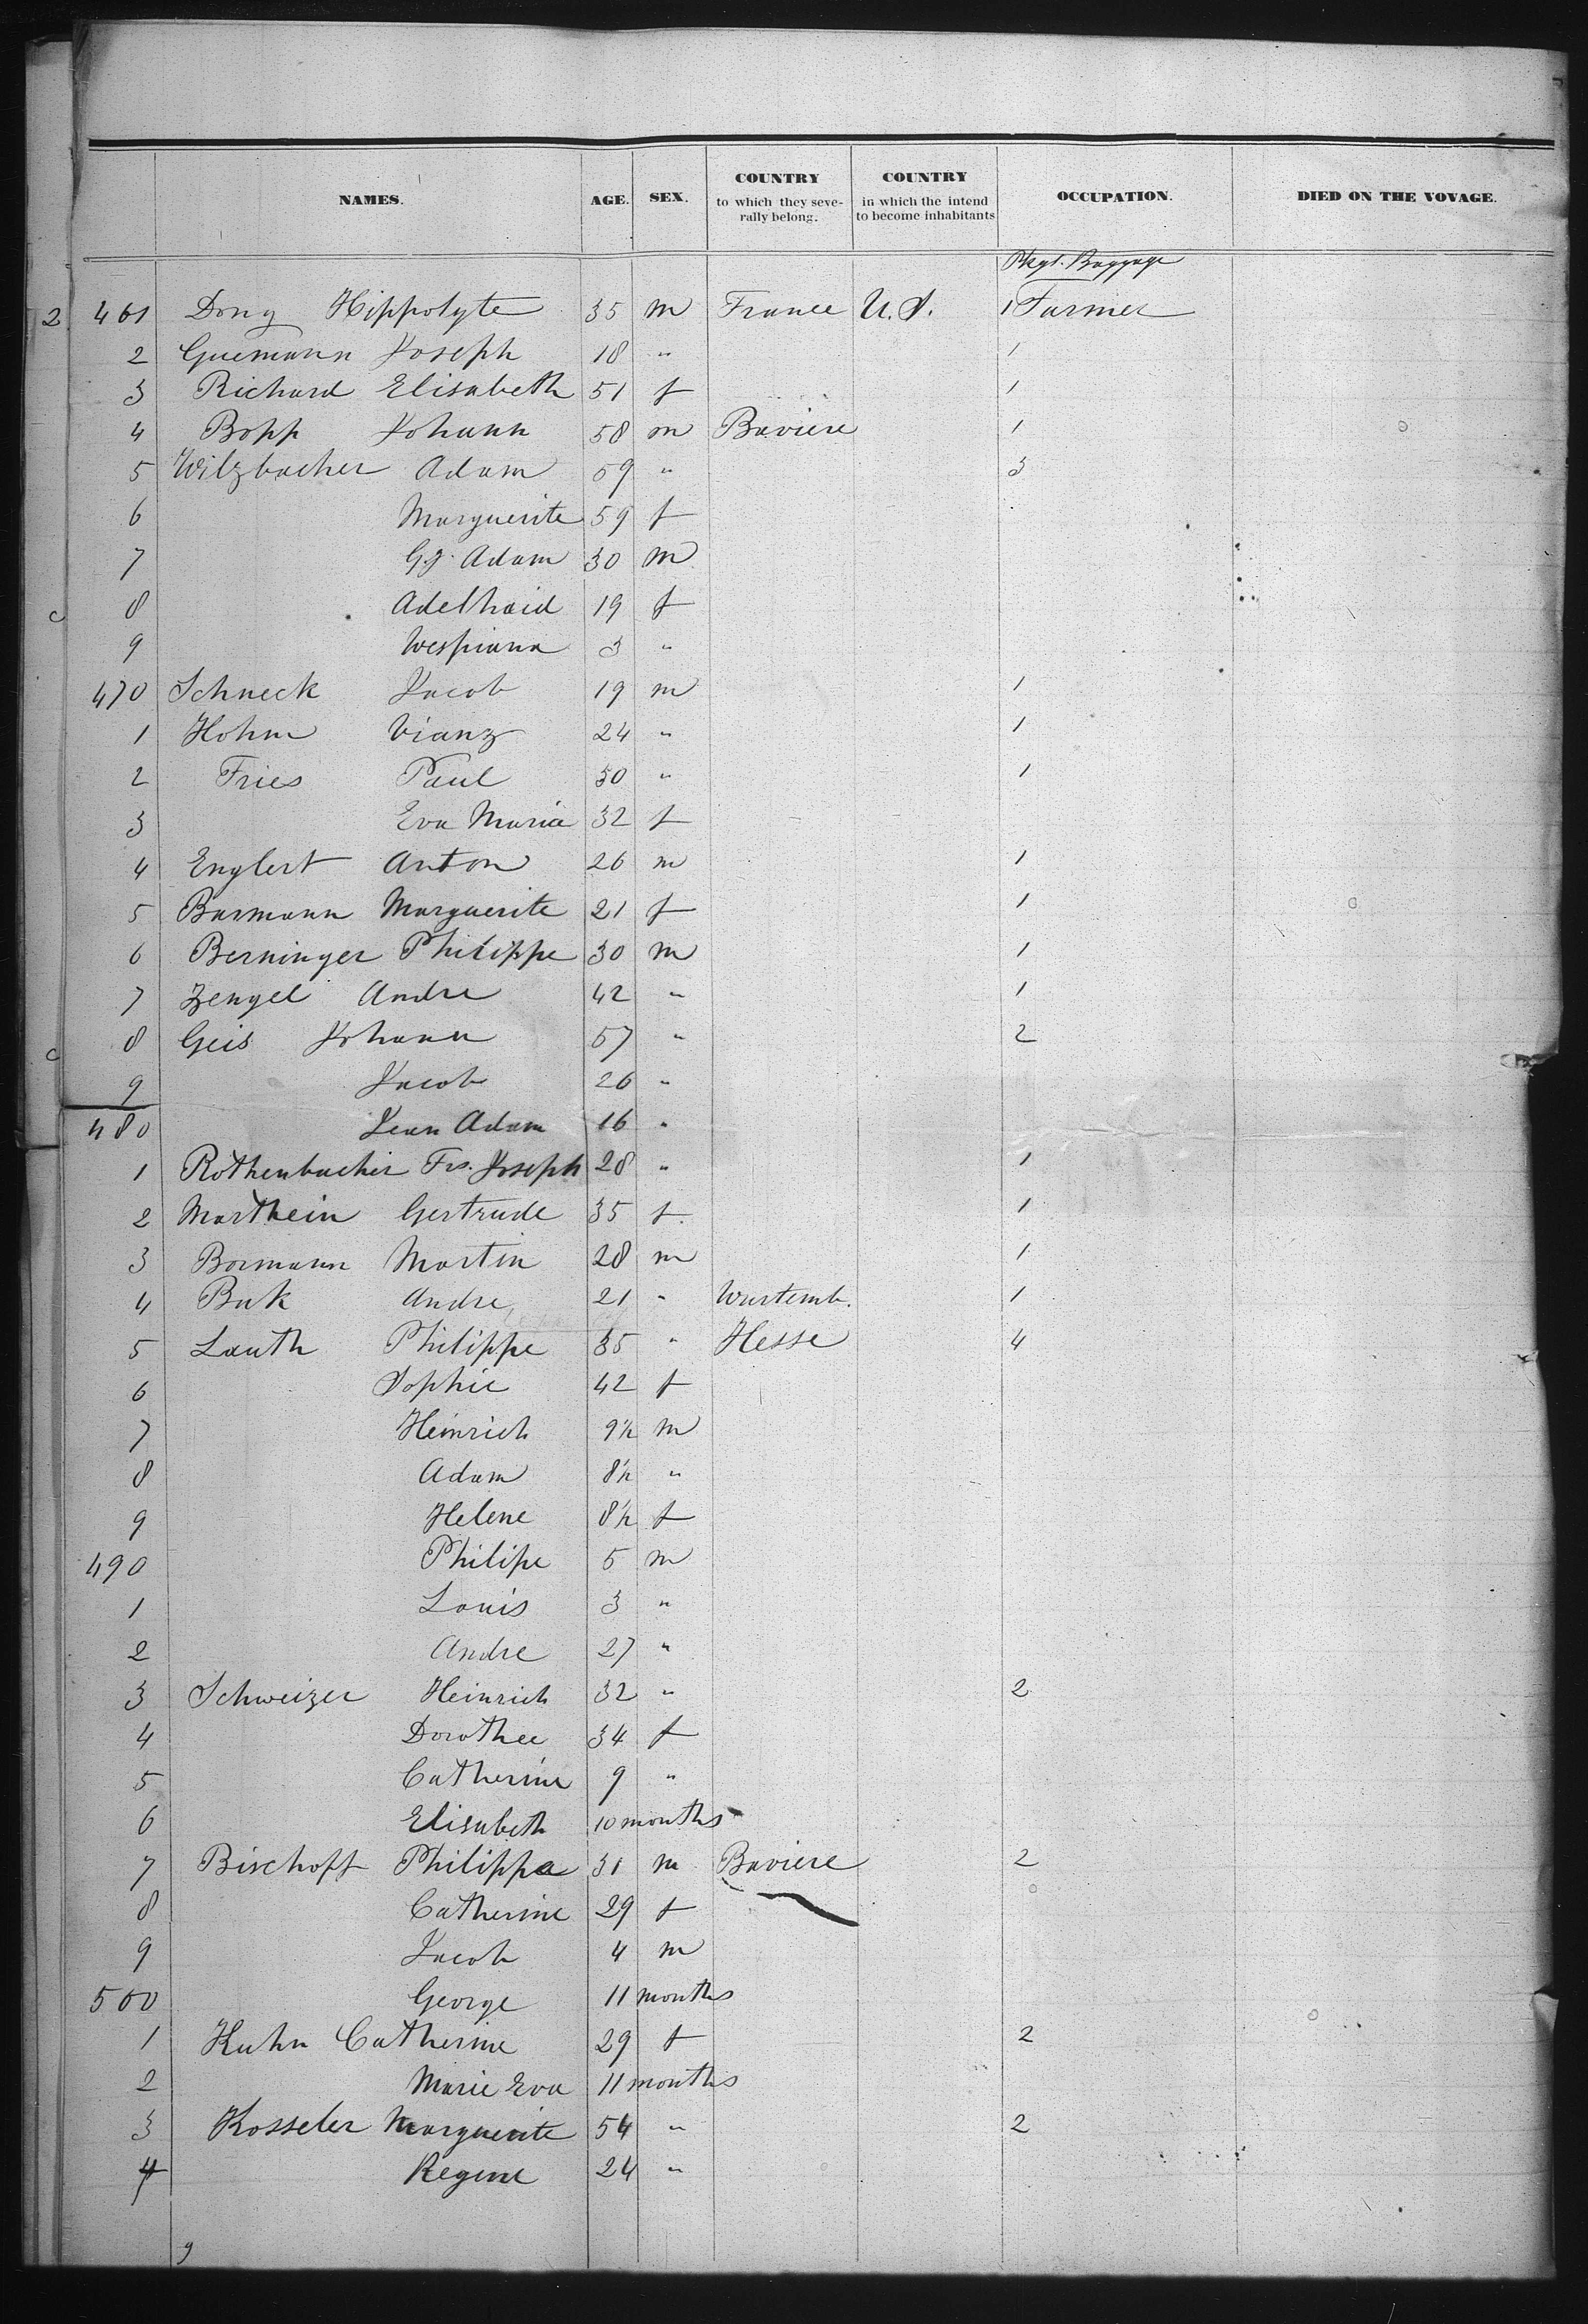 NAMES. AGE. SEX. COUNTRY to which they seve- rally belong. COUNTRY in which the intend to become inhabitants OCCUPATION. DIED ON THE VOYAGE.
Pkgs. Baggage
461 Dony Hippolyte 35 m France U.S. 1 Farmer
2 Guemann Joseph 18 " 1
3 Richard Elisabeth 51 f 1
4 Bopp Johann 58 m Baviere 1
5 Wilzbacher Adam 59 " 3
6 Marguerite 59 f
7 Gg. Adam 30 m
8 Adelhaid 19 f
9 3 "
470 Schneck Jacob 19 m 1
1 Hohm 24 " 1
2 Fries Paul 30 " 1
3 Eva Maria 32 f
4 Englert Anton 26 m 1
5 Barmann Marguerite 21 f 1
6 Berninger Philippe 30 m 1
7 Zengel Andre 42 " 1
8 Geis Johann 57 " 2
9 Jacob 26 "
480 Jean Adam 16 "
1 Rothenbucher Frs. Joseph 28 " 1
2 Marthein Gertrude 35 f. 1
3 Bormann Martin 28 m 1
4 Buk Andre 21 " Wurtemb. 1
5 Lauth Philippe 35 " Hesse 4
6 Sophie 42 f
7 Heinrich 9½ m
8 Adam 8½ "
9 Helene 8½ f
490 Philipe 5 m
1 Louis 3 "
2 Andre 27 "
3 Schweizer Heinrich 32 " 2
4 Dorothee 34 f
5 Catherine 9 "
6 Elisabeth 10 months
7 Bischoff Philippe 31 m Baviere 2
8 Catherine 29 f
9 Jacob 4 m
500 George 11 months
1 Kuhn Catherine 29 f 2
2 Marie Eva 11 months
3 Kosseler Marguerite 54 " 2
4 Regine 24 "